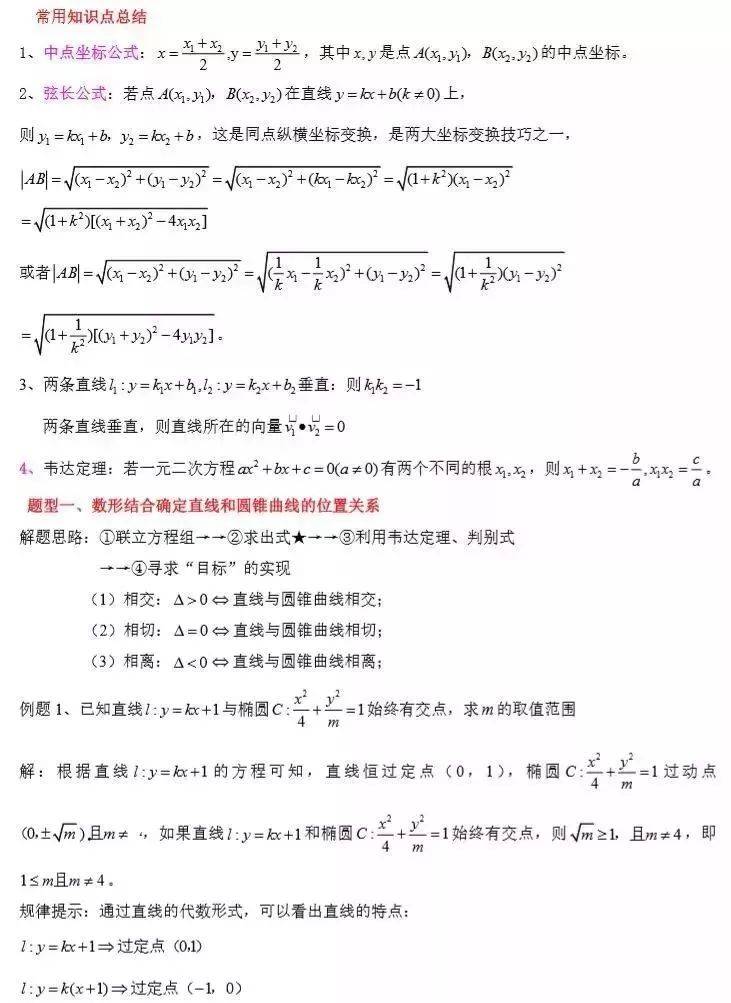 常用知识点总结
1、中点坐标公式：x = (x₁ + x₂)/2, y = (y₁ + y₂)/2，其中 x, y 是点 A(x₁, y₁)，B(x₂, y₂) 的中点坐标。
2、弦长公式：若点 A(x₁, y₁)，B(x₂, y₂) 在直线 y = kx + b(k ≠ 0) 上，
则 y₁ = kx₁ + b，y₂ = kx₂ + b，这是同点纵横坐标变换，是两大坐标变换技巧之一，
|AB| = √((x₁ − x₂)² + (y₁ − y₂)²) = √((x₁ − x₂)² + (kx₁ − kx₂)²) = √((1 + k²)(x₁ − x₂)²)
= √((1 + k²)[(x₁ + x₂)² − 4x₁x₂])
或者 |AB| = √((x₁ − x₂)² + (y₁ − y₂)²) = √((1/k x₁ − 1/k x₂)² + (y₁ − y₂)²) = √((1 + 1/k²)(y₁ − y₂)²)
= √((1 + 1/k²)[(y₁ + y₂)² − 4y₁y₂])。
3、两条直线 l₁ : y = k₁x + b₁, l₂ : y = k₂x + b₂ 垂直：则 k₁k₂ = −1
两条直线垂直，则直线所在的向量 v₁ • v₂ = 0
4、韦达定理：若一元二次方程 ax² + bx + c = 0(a ≠ 0) 有两个不同的根 x₁, x₂，则 x₁ + x₂ = −b/a, x₁x₂ = c/a。
题型一、数形结合确定直线和圆锥曲线的位置关系
解题思路：①联立方程组→→②求出式★→→③利用韦达定理、判别式
→→④寻求“目标”的实现
（1）相交：Δ > 0 ⇔ 直线与圆锥曲线相交；
（2）相切：Δ = 0 ⇔ 直线与圆锥曲线相切；
（3）相离：Δ < 0 ⇔ 直线与圆锥曲线相离；
例题 1、已知直线 l : y = kx + 1 与椭圆 C : x²/4 + y²/m = 1 始终有交点，求 m 的取值范围
解：根据直线 l : y = kx + 1 的方程可知，直线恒过定点（0，1），椭圆 C : x²/4 + y²/m = 1 过动点
(0, ±√m), 且 m ≠ ，如果直线 l : y = kx + 1 和椭圆 C : x²/4 + y²/m = 1 始终有交点，则 √m ≥ 1，且 m ≠ 4，即
1 ≤ m 且 m ≠ 4。
规律提示：通过直线的代数形式，可以看出直线的特点：
l : y = kx + 1 ⇒ 过定点 (0,1)
l : y = k(x + 1) ⇒ 过定点（−1，0）